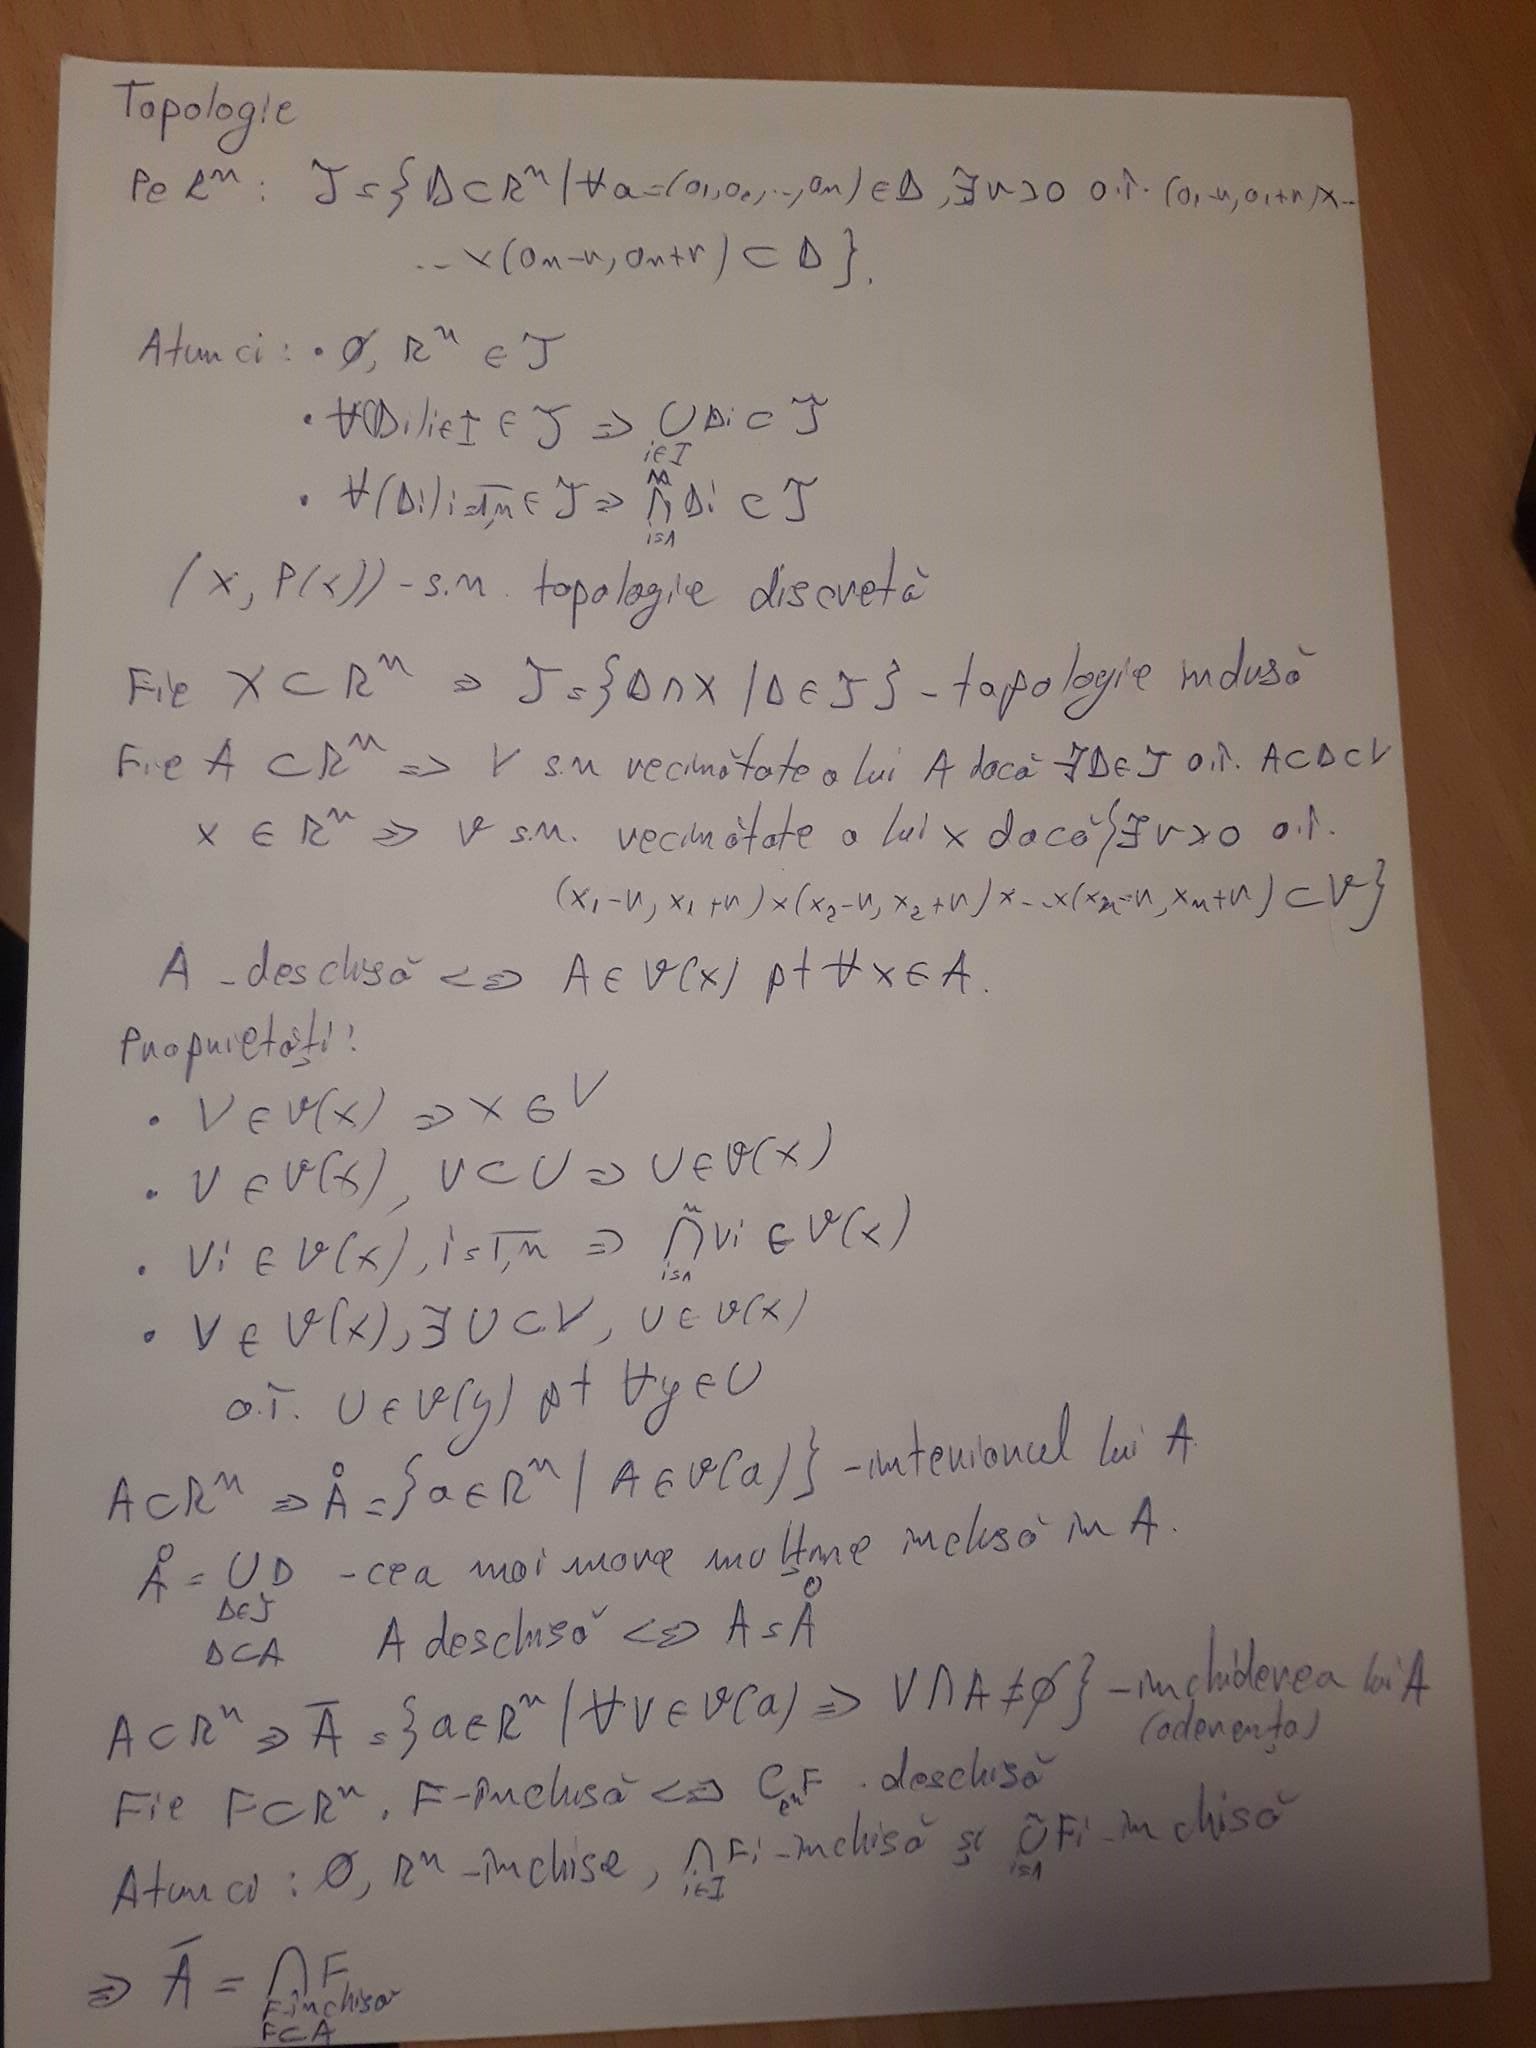 Topologie
Pe ℝⁿ: 𝒯 = {D ⊂ ℝⁿ | ∀a=(a₁,a₂,..,aₙ) ∈ D, ∃r>0 a.î. (a₁-r, a₁+r)×..
..×(aₙ-r, aₙ+r) ⊂ D}.
Atunci: • ∅, ℝⁿ ∈ 𝒯
• ∀(Di)i∈I ∈ 𝒯 ⇒ ∪ Di ⊂ 𝒯
i∈I
• ∀(Di)i=1,n ∈ 𝒯 ⇒ ∩ⁿ Di ⊂ 𝒯
i=1
(X, P(X)) - s.n. topologie discretă
Fie X ⊂ ℝⁿ ⇒ 𝒯 = {D∩X | D∈𝒯} - topologie indusă
Fie A ⊂ ℝⁿ ⇒ V s.n vecinătate a lui A dacă ∃D∈𝒯 a.î. A⊂D⊂V
x ∈ ℝⁿ ⇒ V s.n. vecinătate a lui x dacă {∃r>0 a.î.
(x₁-r, x₁+r)×(x₂-r, x₂+r)×...×(xₙ-r, xₙ+r) ⊂ V}
A - deschisă ⇔ A ∈ 𝒱(x) pt ∀x∈A.
Proprietăți:
• V ∈ 𝒱(x) ⇒ x ∈ V
• V ∈ 𝒱(x), V ⊂ U ⇒ U ∈ 𝒱(x)
• Vi ∈ 𝒱(x), i=1,n ⇒ ∩ⁿ Vi ∈ 𝒱(x)
i=1
• V ∈ 𝒱(x), ∃ U⊂V, U∈𝒱(x)
a.î. U ∈ 𝒱(y) pt ∀y∈U
A⊂ℝⁿ ⇒ Å = {a∈ℝⁿ | A∈𝒱(a)} - interiorul lui A
Å = ∪D - cea mai mare mulțime inclusă in A.
D∈𝒯
D⊂A A deschisă ⇔ A = Å
A⊂ℝⁿ ⇒ A̅ = {a∈ℝⁿ | ∀V∈𝒱(a) ⇒ V∩A≠∅} - inchiderea lui A
(aderența)
Fie F⊂ℝⁿ. F-închisă ⇔ C_ℝⁿ F . deschisă
Atunci: ∅, ℝⁿ - închise, ∩ Fi - închisă și ∪ⁿ Fi - inchisă
i∈I i=1
⇒ A̅ = ∩ F
F-închisă
F⊂A